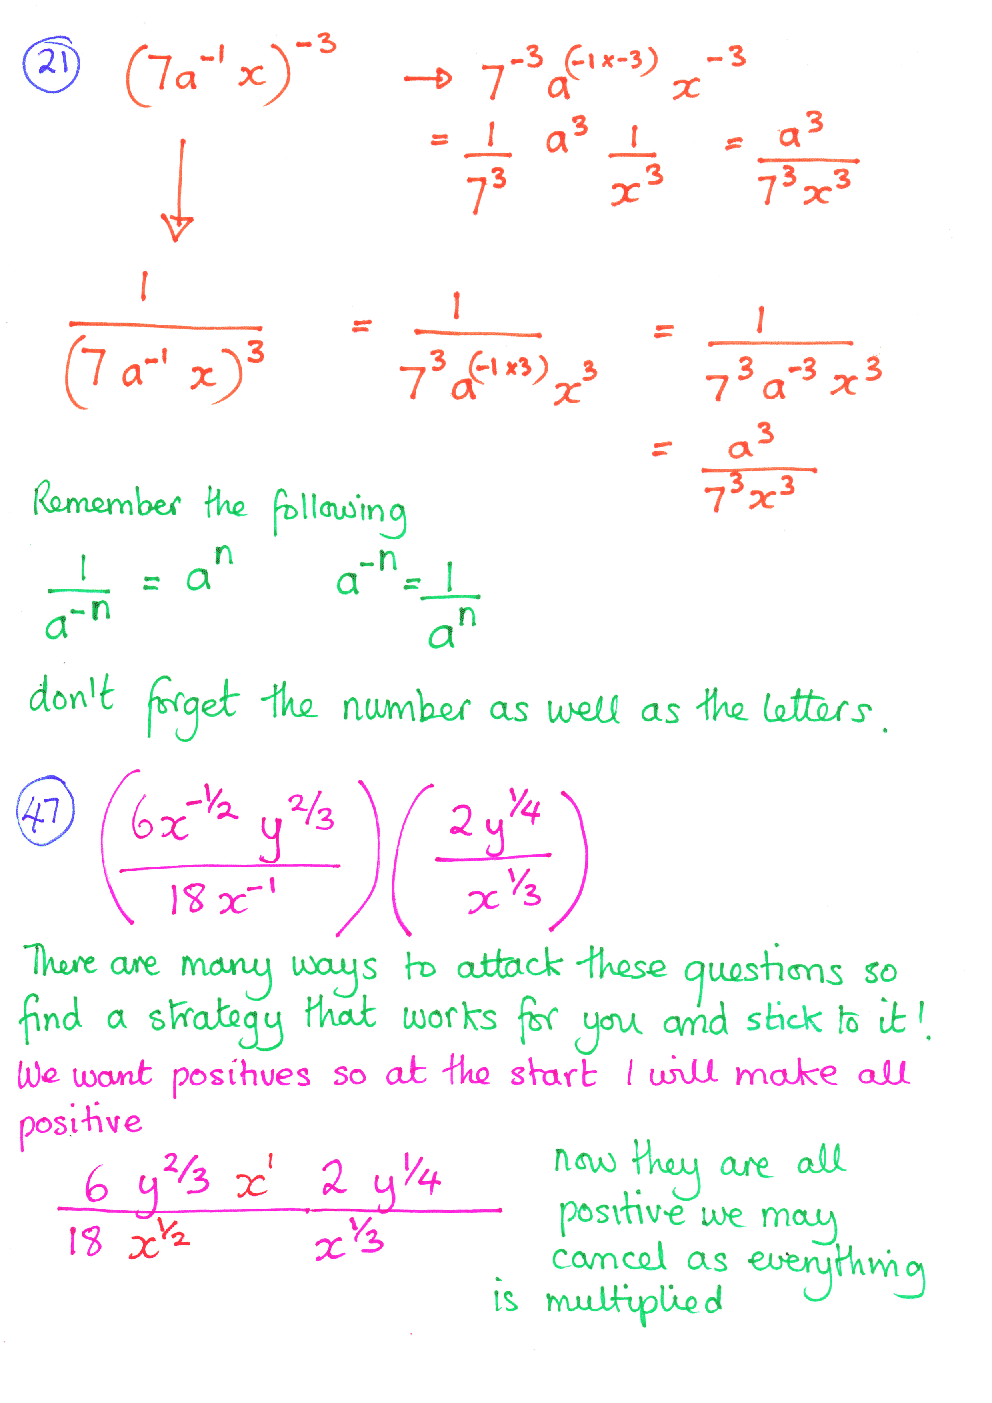 21 (7a⁻¹x)⁻³ → 7⁻³ a⁽⁻¹ˣ⁻³⁾ x⁻³
= 1/7³ a³ 1/x³ = a³/7³x³
1/(7a⁻¹x)³ = 1/7³a⁽⁻¹ˣ³⁾x³ = 1/7³a⁻³x³
= a³/7³x³
Remember the following
1/a⁻ⁿ = aⁿ a⁻ⁿ = 1/aⁿ
don't forget the number as well as the letters.
47 (6x^-1/2 y^2/3 / 18x⁻¹) (2y^1/4 / x^1/3)
There are many ways to attack these questions so
find a strategy that works for you and stick to it!
We want positives so at the start I will make all
positive
6 y^2/3 x¹ 2 y^1/4 / 18 x^1/2 x^1/3
now they are all
positive we may
cancel as everything
is multiplied